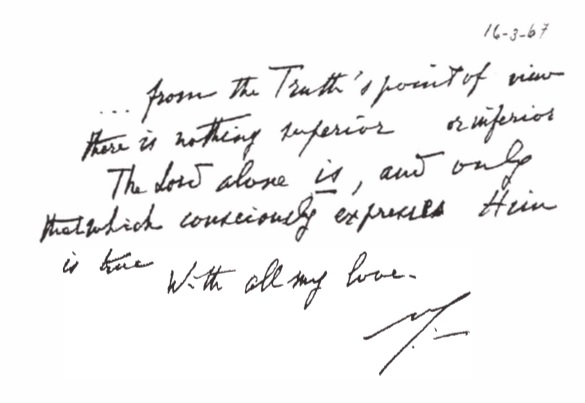 16-3-67
... from the Truth's point of view
there is nothing superior or inferior
The Lord alone is, and only
that which consciously expresses Him
is true
With all my love.